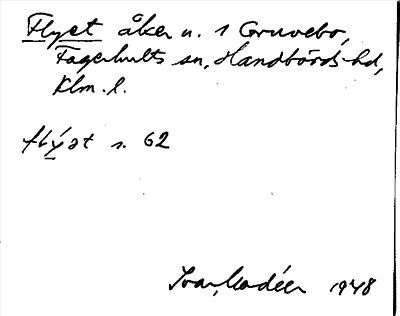 Flyet åker n. 1 Gruvebo,
Fagerhults sn, Handbörds hd,
Klm. l.
flýǝt s. 62
Ivar Modéer 1948